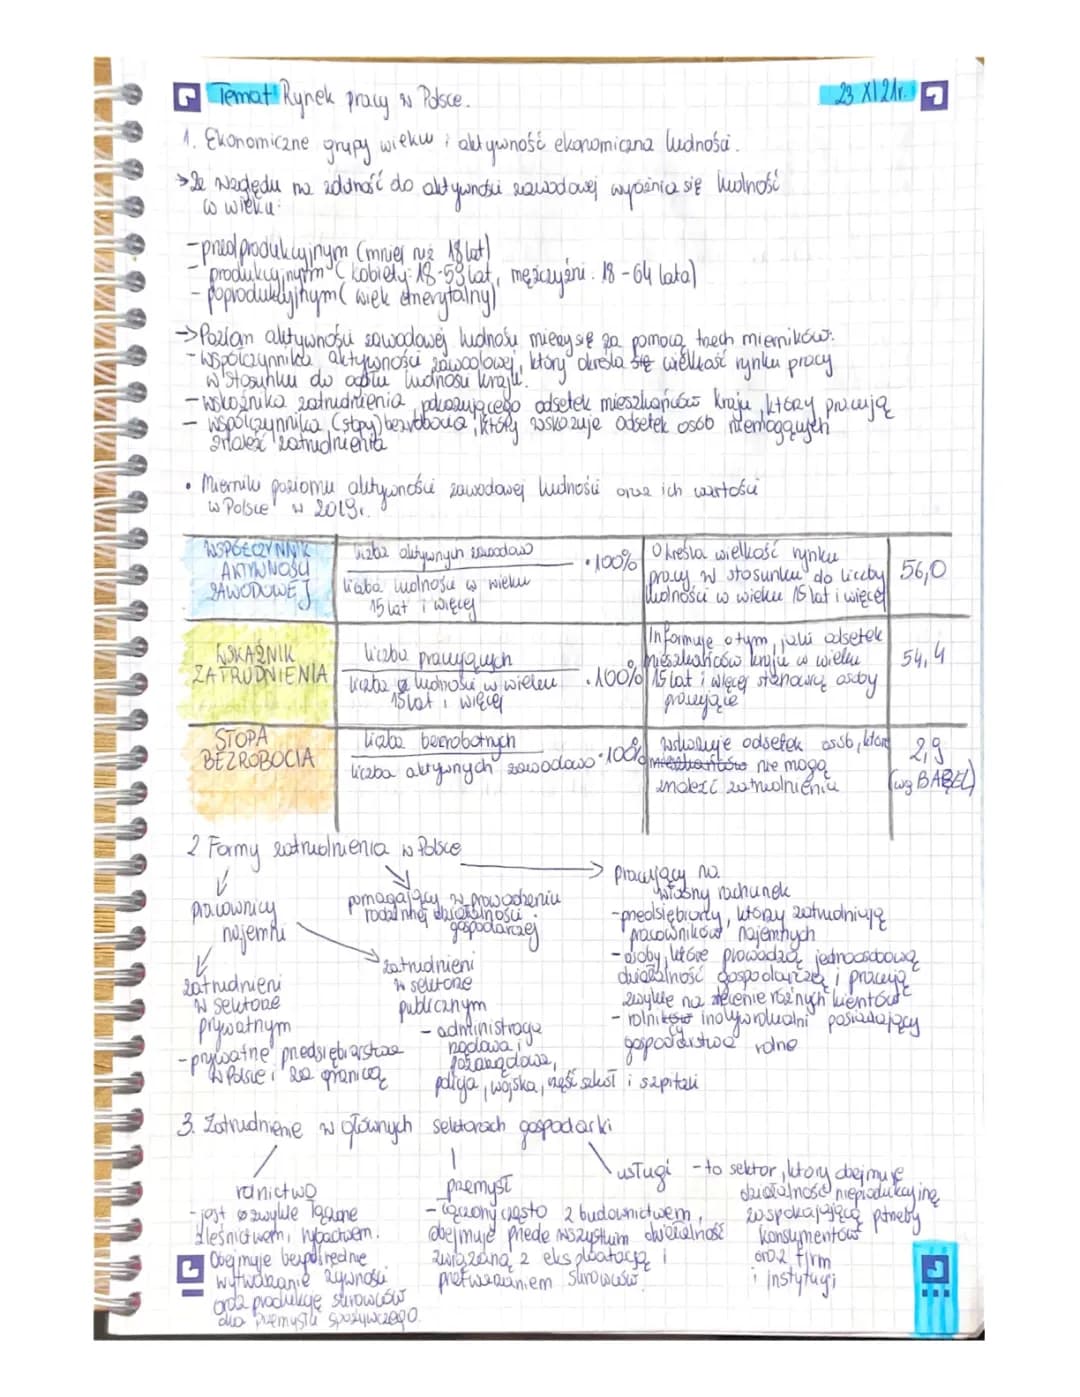 Temat Rynek pracy w Polsce.
23 XI 21r.
1. Ekonomiczne grupy wieku i aktywność ekonomiczna ludności.
→ Ze względu na zdolność do aktywności zawodowej wyróżnia się ludność
w wieku:
- przedprodukcyjnym (mniej niż 18 lat)
- produkcyjnym (kobiety: 18-59 lat, mężczyźni: 18-64 lata)
- poprodukcyjnym (wiek emerytalny)
→ Poziom aktywności zawodowej ludności mierzy się za pomocą trzech mierników:
- współczynnika aktywności zawodowej, który określa się wielkość rynku pracy
w stosunku do ogółu ludności kraju.
- wskaźnika zatrudnienia pokazującego odsetek mieszkańców kraju, którzy pracują
- współczynnika (stopy) bezrobocia, który wskazuje odsetek osób niemogących
znaleźć zatrudnienia
• Mierniki poziomu aktywności zawodowej ludności oraz ich wartości
w Polsce w 2019r.
WSPÓŁCZYNNIK
AKTYWNOŚCI
ZAWODOWEJ
liczba aktywnych zawodowo
liczba ludności w wieku
15 lat i więcej
· 100%
Określa wielkość rynku
pracy w stosunku do liczby
ludności w wieku 15 lat i więcej
56,0
WSKAŹNIK
ZATRUDNIENIA
liczba pracujących
liczba ludności w wieku
15 lat i więcej
· 100%
Informuje o tym, jaki odsetek
mieszkańców kraju w wieku
15 lat i więcej stanowią osoby
pracujące
54,4
STOPA
BEZROBOCIA
liczba bezrobotnych
liczba aktywnych zawodowo
· 100%
wskazuje odsetek osób, które
mieszkańców nie mogą
znaleźć zatrudnienia
2,9
(wg BAEL)
2 Formy zatrudnienia w Polsce
pracownicy
najemni
pomagający w prowadzeniu
rodzinnej działalności
gospodarczej
pracujący na
własny rachunek
- przedsiębiorcy, którzy zatrudniają
pracowników najemnych
- osoby, które prowadzą jednoosobową
działalność gospodarczą i pracują
zwykle na zlecenie różnych klientów
- rolnicy indywidualni posiadający
gospodarstwa rolne
zatrudnieni
w sektorze
prywatnym
- prywatne przedsiębiorstwa
w Polsce i za granicą
zatrudnieni
w sektorze
publicznym
- administracja
rządowa i
pozarządowa,
policja, wojska, część szkół i szpitali
3. Zatrudnienie w głównych sektorach gospodarki
rolnictwo
- jest zwykle łączone
z leśnictwem, rybactwem.
Obejmuje bezpośrednie
wytwarzanie żywności
oraz produkcję surowców
dla przemysłu spożywczego.
przemysł
- łączony często z budownictwem,
obejmuje przede wszystkim działalność
związaną z eksploatacją i
przetwarzaniem surowców.
usługi - to sektor, który obejmuje
działalność nieprodukcyjną
zaspokajającą potrzeby
konsumentów
oraz firm
i instytucji